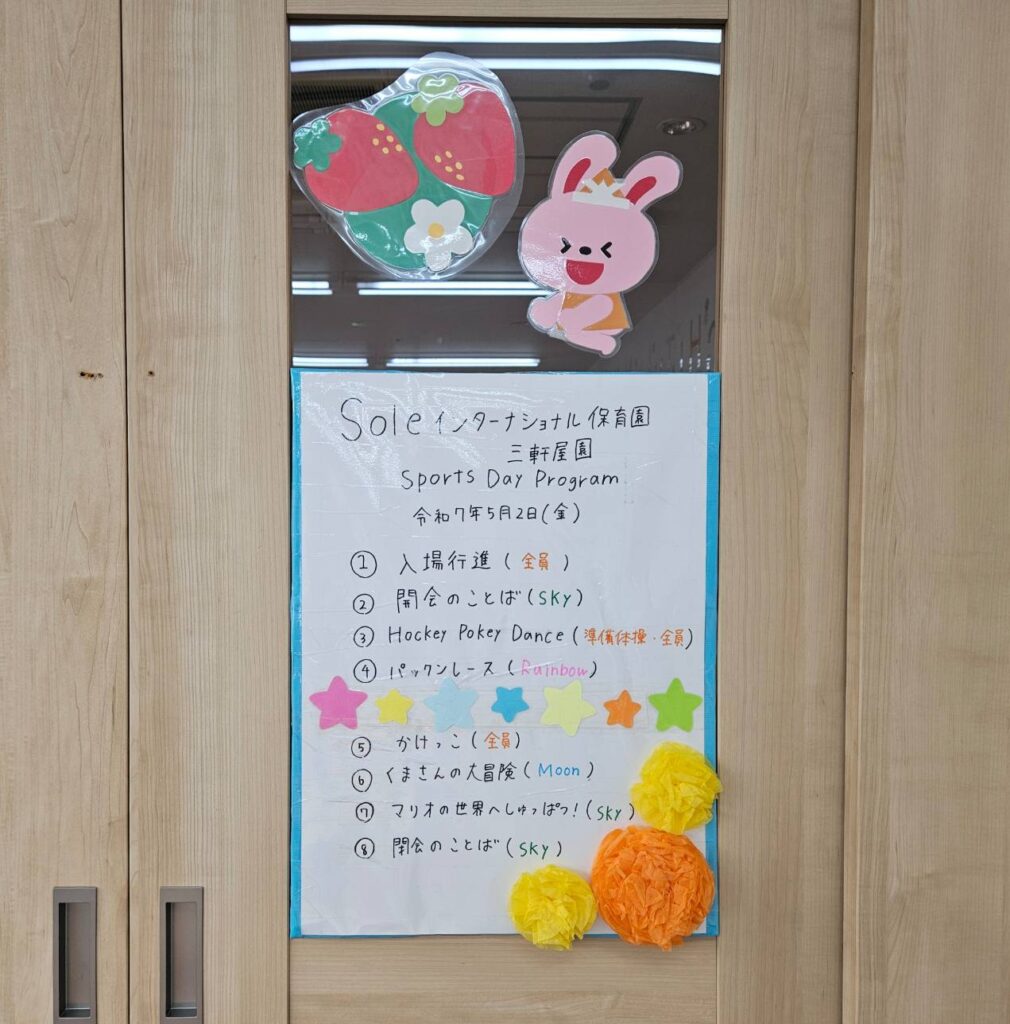 Sole インターナショナル 保育園
三軒屋園
Sports Day Program
令和7年5月2日(金)
① 入場行進 (全員)
② 開会のことば (Sky)
③ Hockey Pokey Dance (準備体操・全員)
④ パックンレース (Rainbow)
⑤ かけっこ (全員)
⑥ くまさんの大冒険 (Moon)
⑦ マリオの世界へしゅっぱつ! (Sky)
⑧ 閉会のことば (Sky)